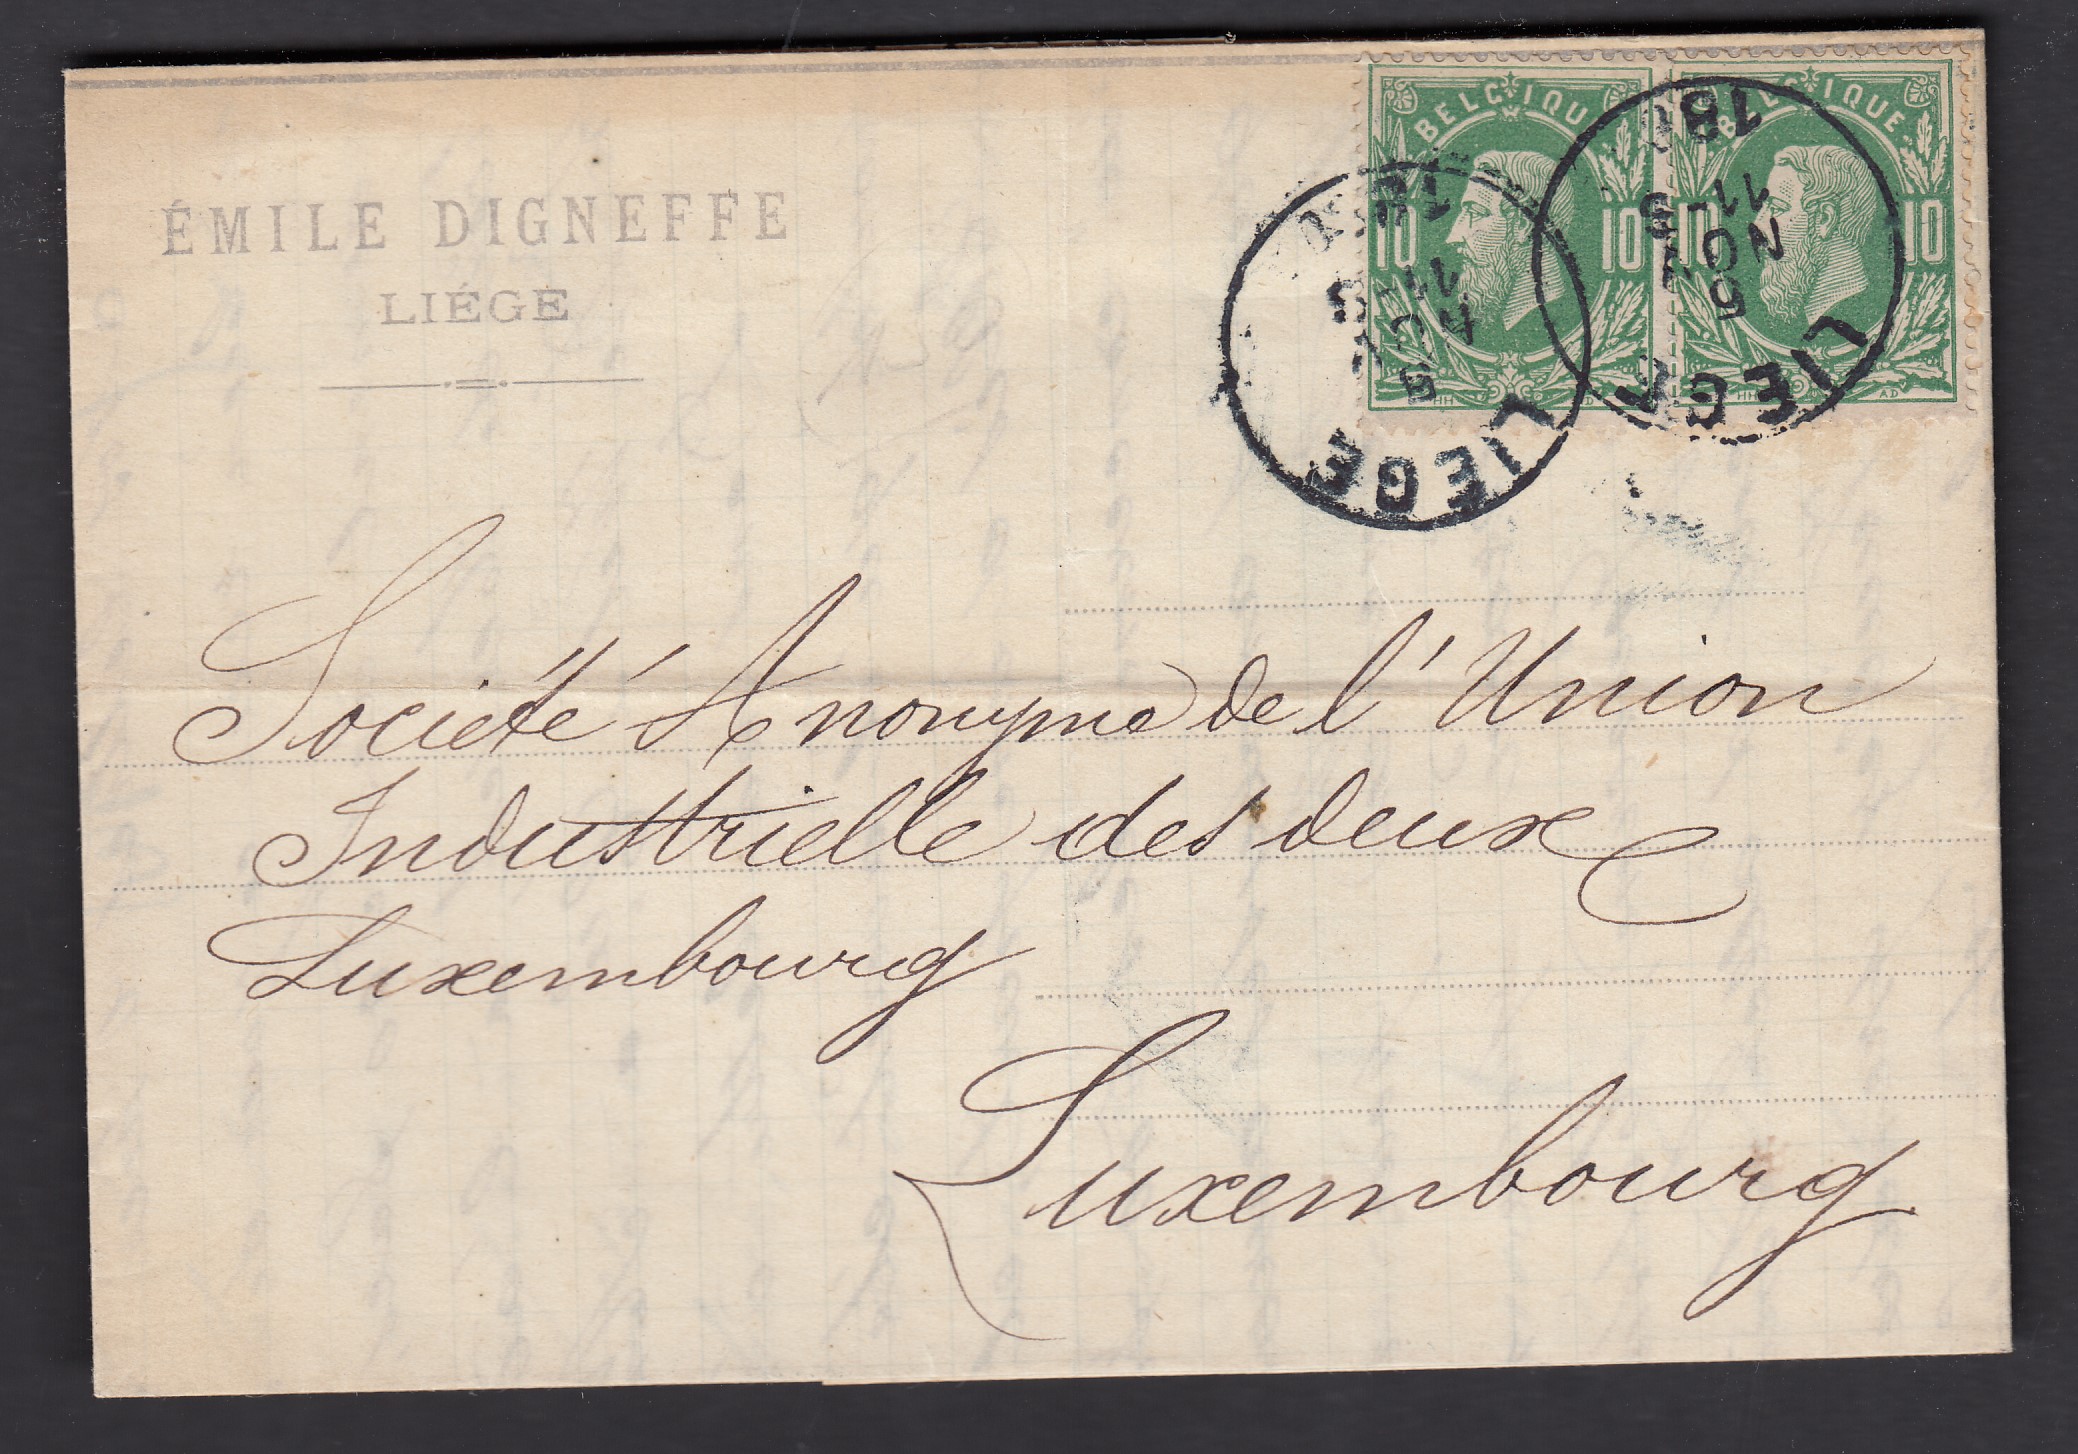 ÉMILE DIGNEFFE
LIÉGE
BELGIQUE
10 10
BELGIQUE
10 10
HH AD
LIEGE
5
NOV
11-S
LIEGE
5
NOV
11-S
Société Anonyme de l'Union
Industrielle des deux
Luxembourg
Luxembourg